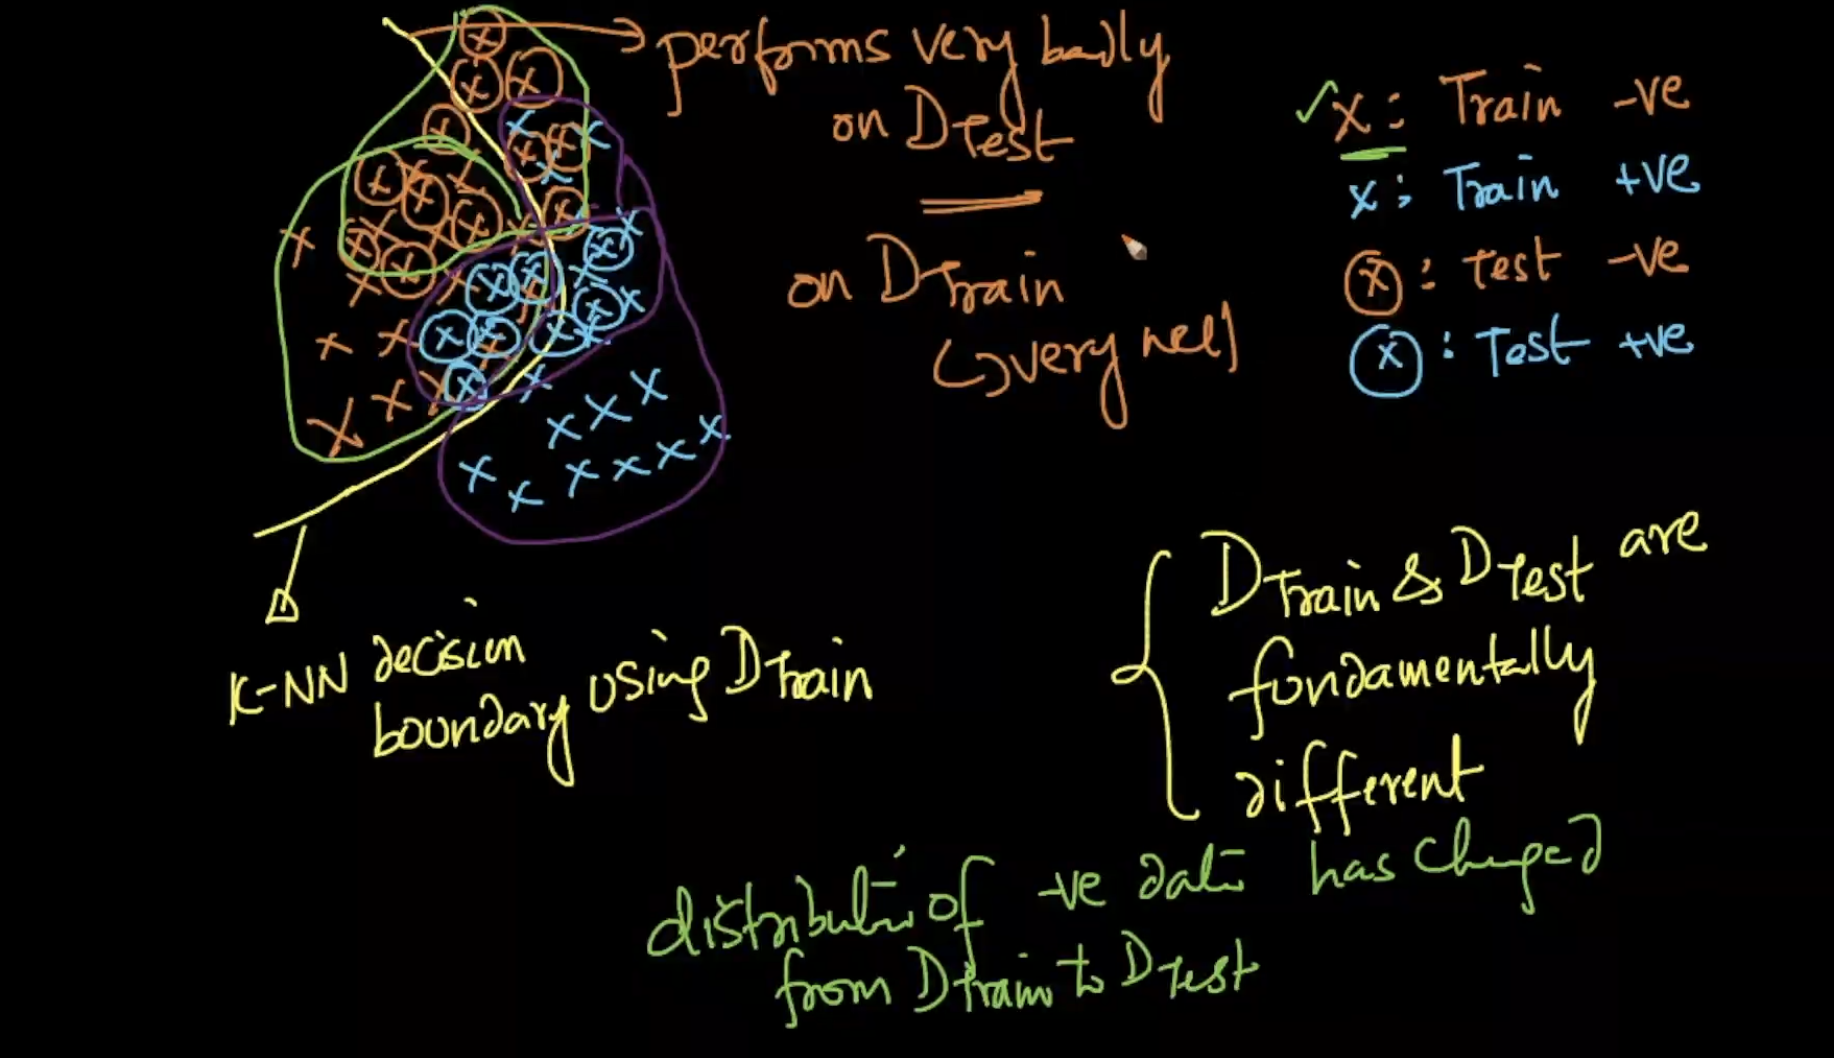 performs very badly
on DTest
on DTrain
(→very well)
x : Train -ve
x : Train +ve
x : Test -ve
x : Test +ve
K-NN decision
boundary using DTrain
DTrain & DTest are
fundamentally
different
distributiⁿ of -ve data has changed
from DTrain to DTest